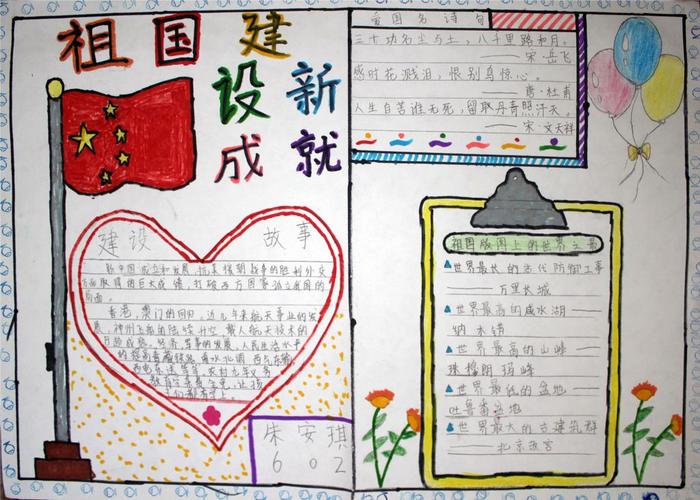 祖国建
设新
成就
爱国名诗句
三十功名尘与土,八千里路和月。
——宋·岳飞
感时花溅泪,恨别鸟惊心。
——唐·杜甫
人生自苦谁无死,留取丹青照汗天。
——宋·文天祥
建设 故事
新中国成立和发展,抗美援朝战争的胜利外交
方面取得的巨大成绩,打破西方国家孤立我国的
局面。
香港,澳门的回归,近几年来航天事业的发
展,神州飞船的陆续升空,载人航天技术的
日趋成熟。经济、军事的发展,人民生活水平
的提高青藏铁路,南水北调 西气东输,
西电东送等等。农村九年义务
教育学杂费全免,让孩
子们都有书上。
朱安琪
602
祖国版图上的世界之最
世界最长的古代防御工事
——万里长城
世界最高的咸水湖——
纳木错
世界最高的山峰——
珠穆朗玛峰
世界最低的盆地——
吐鲁番盆地
世界最大的古建筑群
——北京故宫